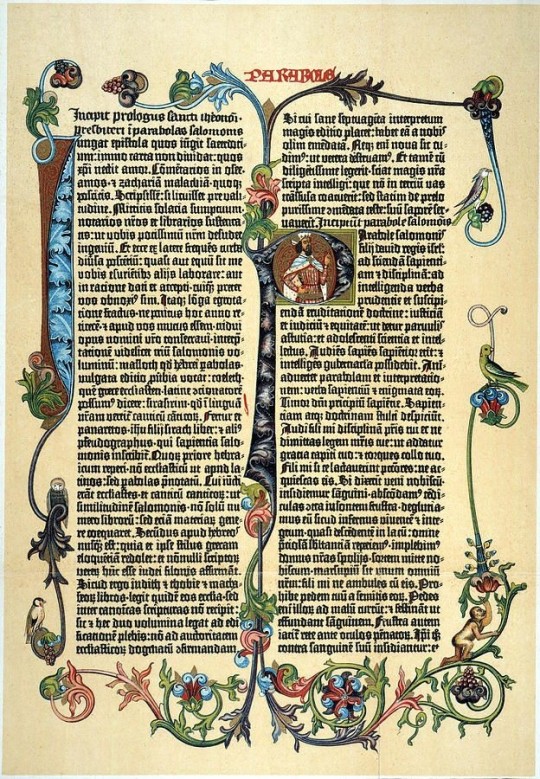 PARABOLE
Incipit prologus sancti iheronimi
presbiteri ī parabolas salomonis
Iungat epistola quos iūgit sacerdoti-
um: immo carta non dividat: quos
xp̄i nectit amor. Cōmētarios in osee-
amos-⁊ zachariā malachiā-quoqȝ
poscitis. Scripsissē: si licuisset pre vali-
tudine. Mittitis solacia sumptuum-
notarios nr̄os et librarios sustenta-
tis: ut vobis potissimū nr̄m desudet
ingeniū. Et ecce ex latere frequēs turba
diūsa poscētiū: quasi aut equū sit me
vobis esuriētibȝ alijs laborare: aut
in racione dati et accepti-cuiqȝ preter
vos obnoxiꝰ sim. Itaqȝ lōga egrota-
tione fractus-ne penitus hoc anno re-
ticerē-⁊ apud vos mutus essem-tridui
opus nomini vr̄o consecravi-interp̄-
tationē videlicet triū salomonis vo-
luminū: masloth qd̄ hebrei parabolas-
vulgata editio ꝓūbia vocat: coeleth-
quē grece ecclesiasten-latine ꝯcionatorē
possumꝰ dicere: sirasirim-qd̄ ī linguā
nr̄am vertit̄ canticū cāticoꝝ. Fertur et
panaretos-ihū filij sirach liber: ⁊ aliꝰ
pseudographus-qui sapientia salo-
monis inscribit̄. Quoꝝ priorē hebra-
icum reperi-nō ecclesiasticū ut apud la-
tinos: sed parabolas p̄notatū. Cui iūcti
erāt ecclesiastes-et canticū canticoꝝ: ut
similitudinē salomonis-nō solū nu-
mero librorū: sed etiā materiaꝝ gene-
re coequaret. Secūdus apud hebreos
nusqȝ est: quia et ipse stilus grecam
eloquētiā redolet: et nōnulli scriptoꝝ
veterū hūc esse iudei filonis affirmāt.
Sicut ergo iudith ⁊ thobie ⁊ macha-
beoꝝ libros-legit quidē eos ecclīa-sed
inter canoicas scripturas nō recipit:
sic ⁊ hec duo volumina legat ad edi-
ficationē plebis: nō ad auctoritatem
ecclesiasticoꝝ dogmatū ꝯfirmandam.
Si cui sane septuagīta interpretum
magis editio placet: habet eā a nobis
olim emēdatā. Neqȝ eni nova sic cu-
dimꝰ: ut vetera destruamꝰ. Et tamē cū
diligētissime legerit-sciat magis nr̄a
scripta intelligi: que nō in terciū vas
trāsfusa coacuerīt: sed statim de prelo
purissime ꝯmēdata teste: suū saporē ser-
vaverīt. Incipiūt parabole salomōis
Parabole salomonis
filij david regis isrl̄:
ad sciendā sapienti-
am ⁊ disciplinā: ad
intelligenda verba
prudentie et suscipi-
endā eruditationē doctrine: iusticiā
et iudiciū ⁊ equitatē: ut detur parvulis
astutia: et adolescenti scientia et intel-
lectus. Audiēs sapiēs sapiētior erit: ⁊
intelligēs gubernacla possidebit. Ani-
advertet parabolam et interpretatio-
nem: verba sapientiū ⁊ enigmata eoꝝ.
Timor dn̄i principiū sapiētie. Sapien-
tiam atqȝ doctrinam stulti despiciūt.
Audi fili mi disciplinā pr̄is tui et ne
dimittas legem mr̄is tue: ut addatur
gracia capiti tuo: ⁊ torques collo tuo.
Fili mi si te lactaverint pctōres: ne ac-
quiescas eis. Si dixerīt veni nobiscū-
insidiemur sāguini-abscōdamꝰ tēdi-
culas ɔtra insontem frustra-deglutia-
mus eū sicud infernus viventē ⁊ inte-
grum-quasi descēdentē in lacū: omnē
p̄ciosā sb̄stantiā reperiemꝰ-implebimꝰ
domus nr̄as spolijs-sortem mitte no-
biscum-marsupiū sit unum omniū
nr̄m: fili mi ne ambules cū eis. Pro-
hibe pedem tuū a semitis eoꝝ. Pedes
eni illoꝝ ad malū currūt: ⁊ festināt ut
effundant sāguinem. Frustra autem
iacit̄ rete ante oculos pēnatoꝝ. Ipi̅ qȝ
contra sanguinē suū insidiantur: et